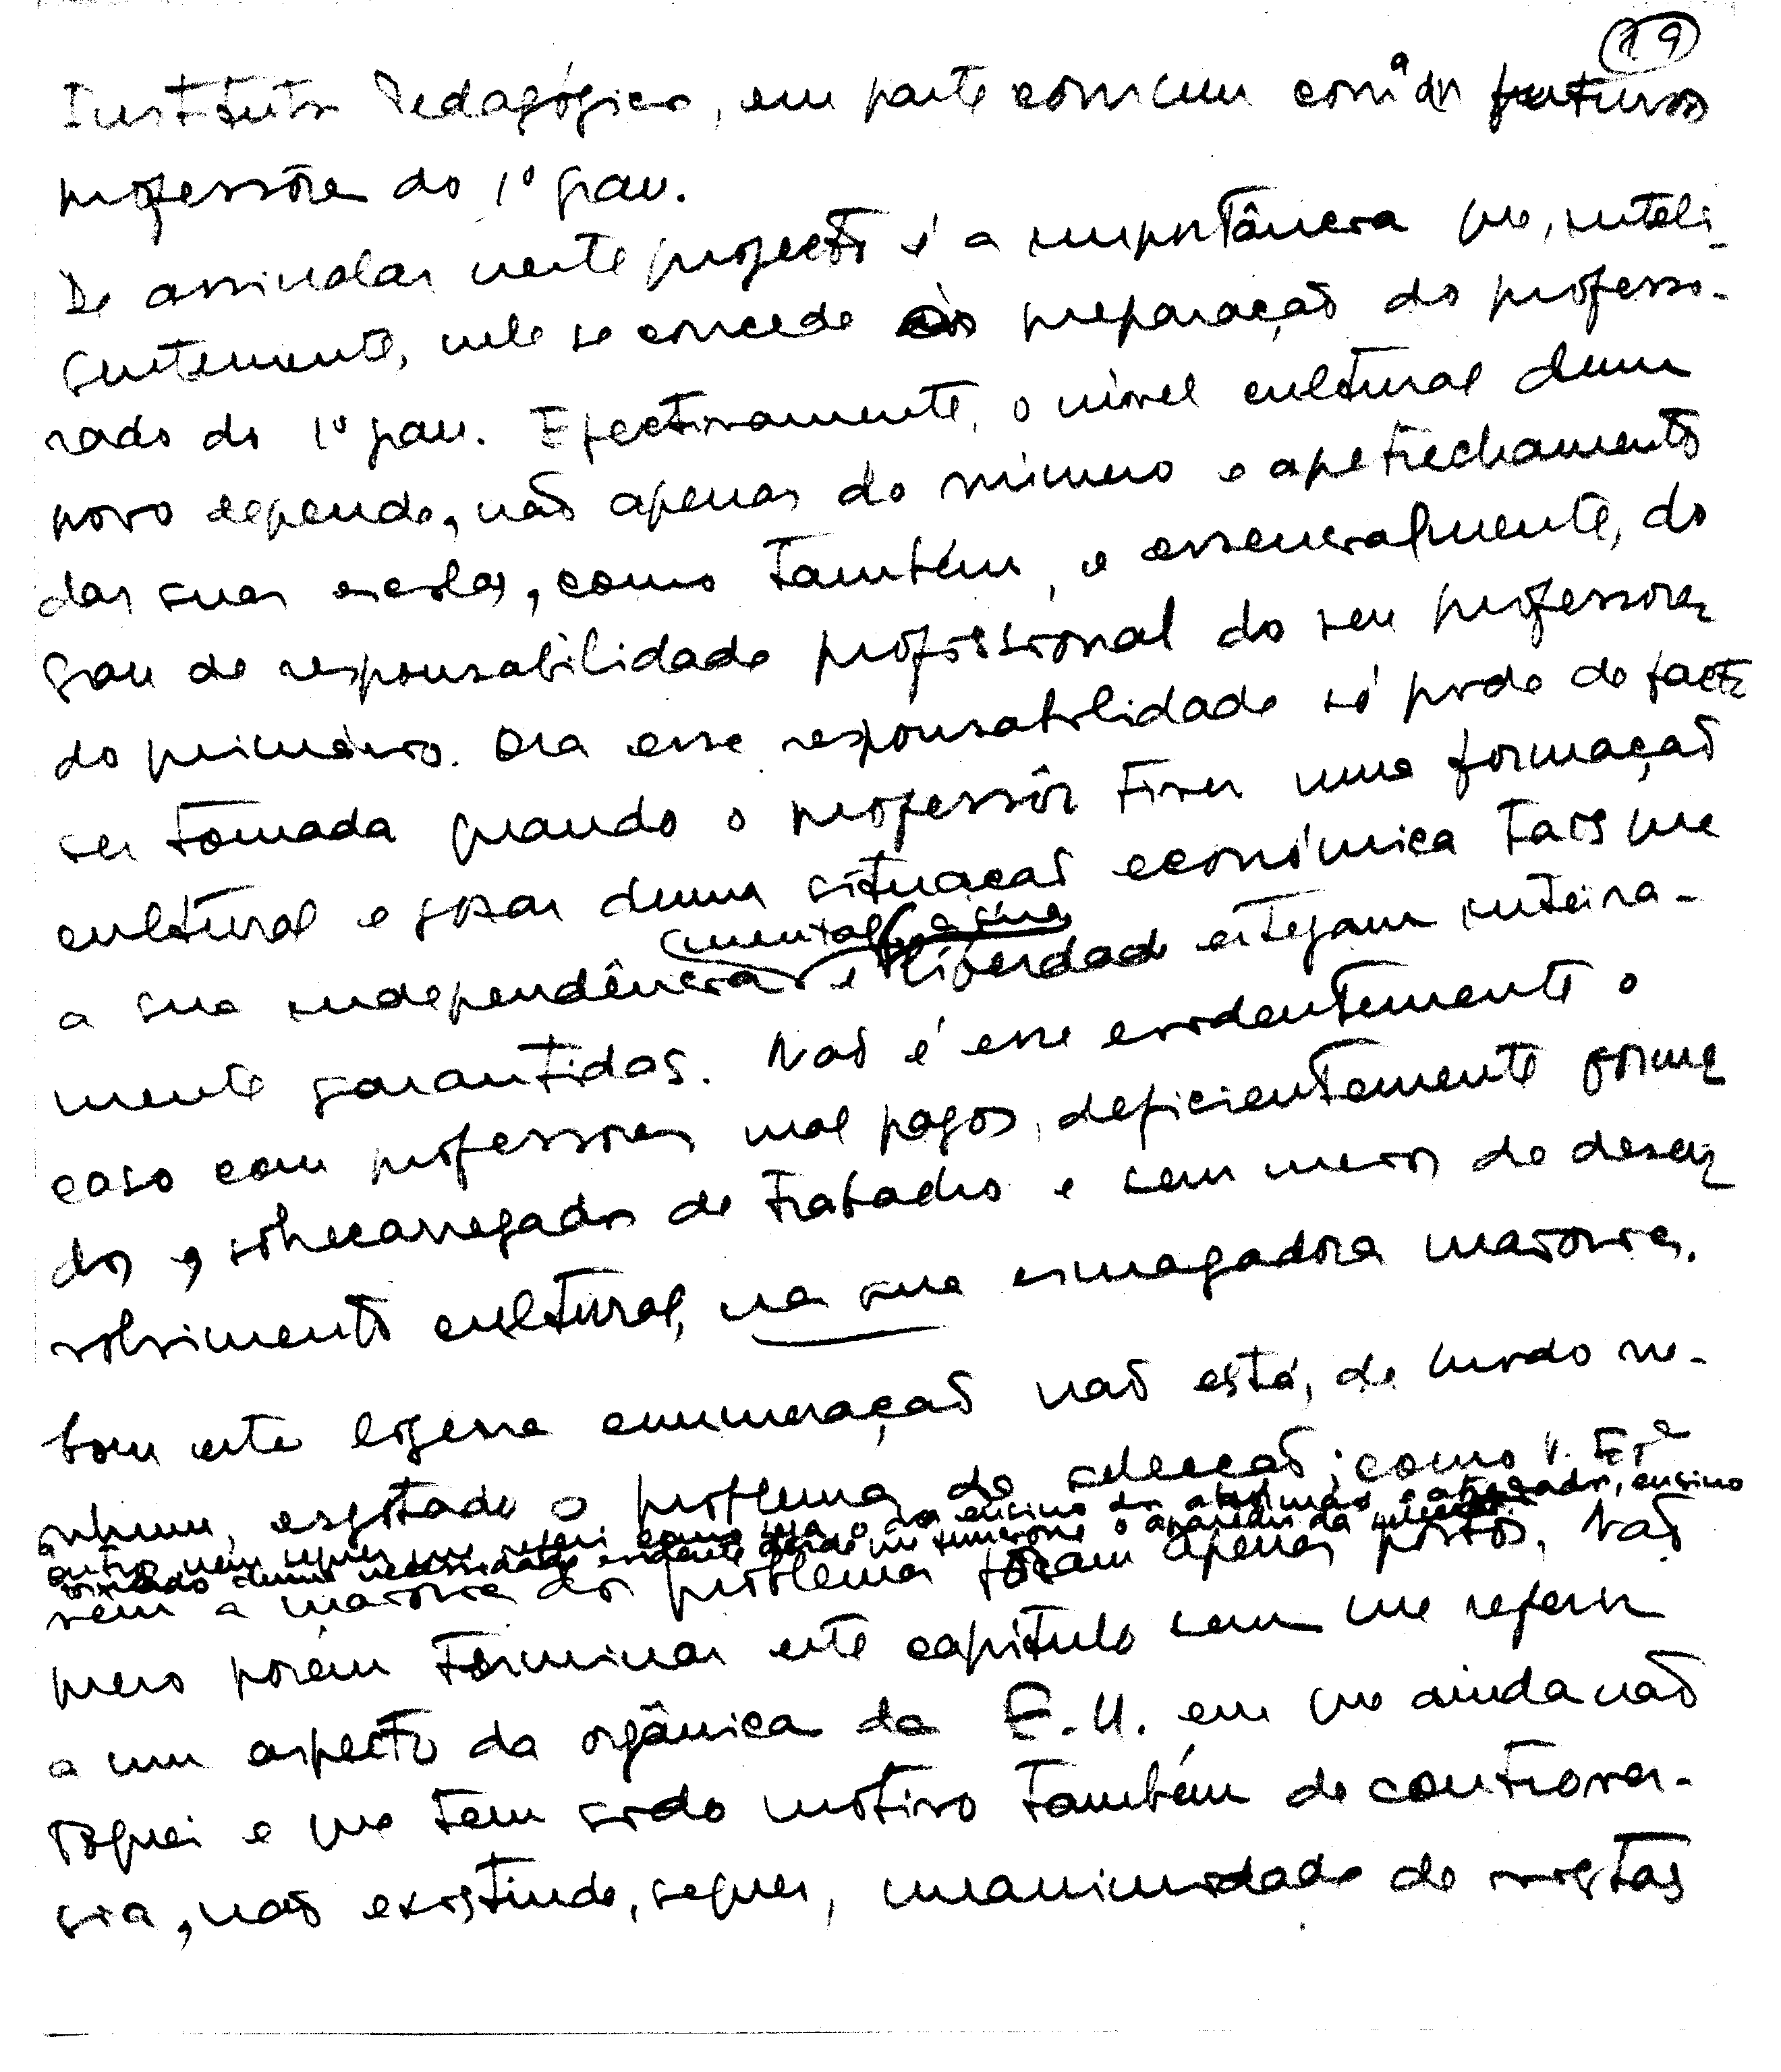 19
Instituto Pedagógico, em parte comum com a dos futuros
professôres do 1º grau.
De assinalar neste projecto é a importância que, inteli-
gentemente, nele se concede à preparação do professo-
rado do 1º grau. Efectivamente, o nível cultural dum
povo depende, não apenas do número e apetrechamento
das suas escolas, como também, e essencialmente, do
grau de responsabilidade profissional do seu professorado
do primário. Ora essa responsabilidade só pode de facto
ser tomada quando o professôr tiver uma formação
cultural e gozar duma situação económica tais que
mental e a sua
a sua independência e liberdade estejam inteira-
mente garantidas. Não é esse evidentemente o
caso com professores mal pagos, deficientemente forma
dos e, sobrecarregados de trabalho e sem meios de desen
volvimento cultural, na sua esmagadora maioria.
Com esta ligeira enumeração não está, de modo ne-
nhum, esgotado o problema da selecção; como
outros nem sequer me referi como seja o do ensino do
duma necessidade evidente desde que funcione o aparelho da selecção
nem a maioria dos problemas foram apenas postos. Não
quero porém terminar este capítulo sem me referir
a um aspecto da orgânica da E.U. em que ainda não
toquei e que tem sido motivo também de controver-
sia, não existindo, sequer, unanimidade de vistas